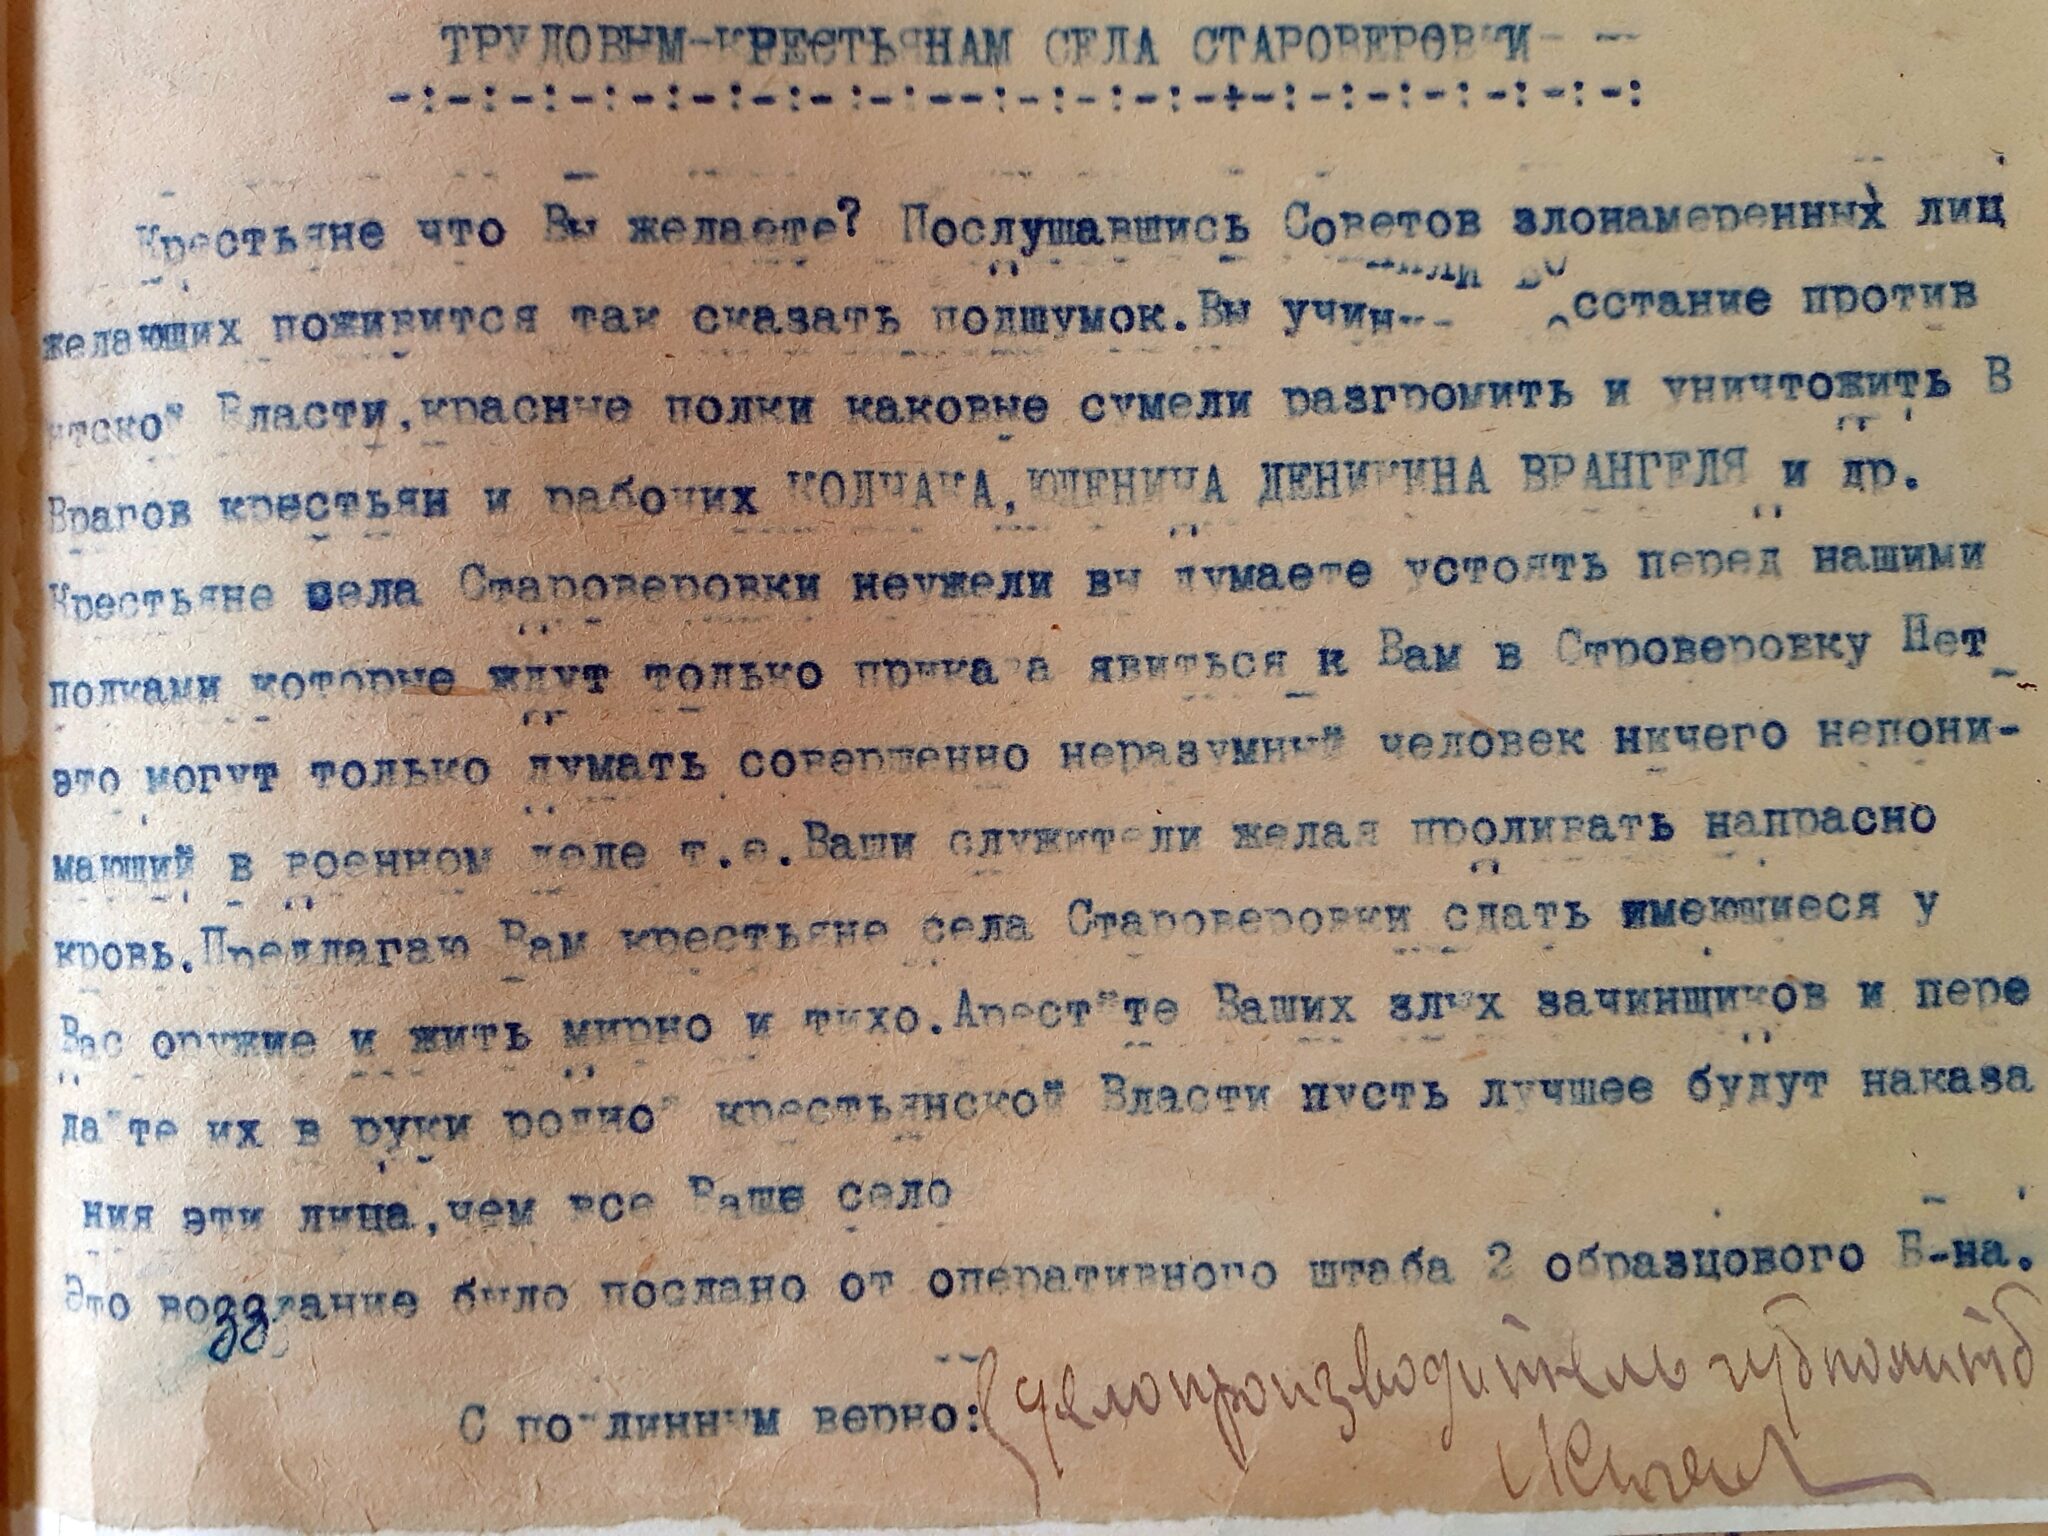 ТРУДОВЫМ-КРЕСТЬЯНАМ СЕЛА СТАРОВЕРОВКИ- --
-:-:-:-:-:-:-:-:-:--:-:-:-:-+-:-:-:-:-:-:-:
Крестьяне что Вы желаете? Послушавшись Советов злонамеренных лиц
желающих поживится так сказать подшумок.Вы учинили восстание против
етской Власти,красные полки каковые сумели разгромить и уничтожить В
Врагов крестьян и рабочих КОЛЧАКА,ЮДЕНИЧА ДЕНИКИНА ВРАНГЕЛЯ и др.
Крестьяне села Староверовки неужели вы думаете устоять перед нашими
полками которые ждут только приказа явиться к Вам в Строверовку Нет
это могут только думать совершенно неразумный человек ничего непони-
мающий в военном деле т.е.Ваши служители желая проливать напрасно
кровь.Предлагаю Вам крестьяне села Староверовки сдать имеющиеся у
Вас оружие и жить мирно и тихо.Арестйте Ваших злых зачинщиков и пере
дайте их в руки родной крестьянской Власти пусть лучшее будут наказа
ния эти лица,чем все Ваше село
Это воззвание было послано от оперативного штаба 2 образцового Б-на.
С подлинным верно: Делопроизводитель губполитб